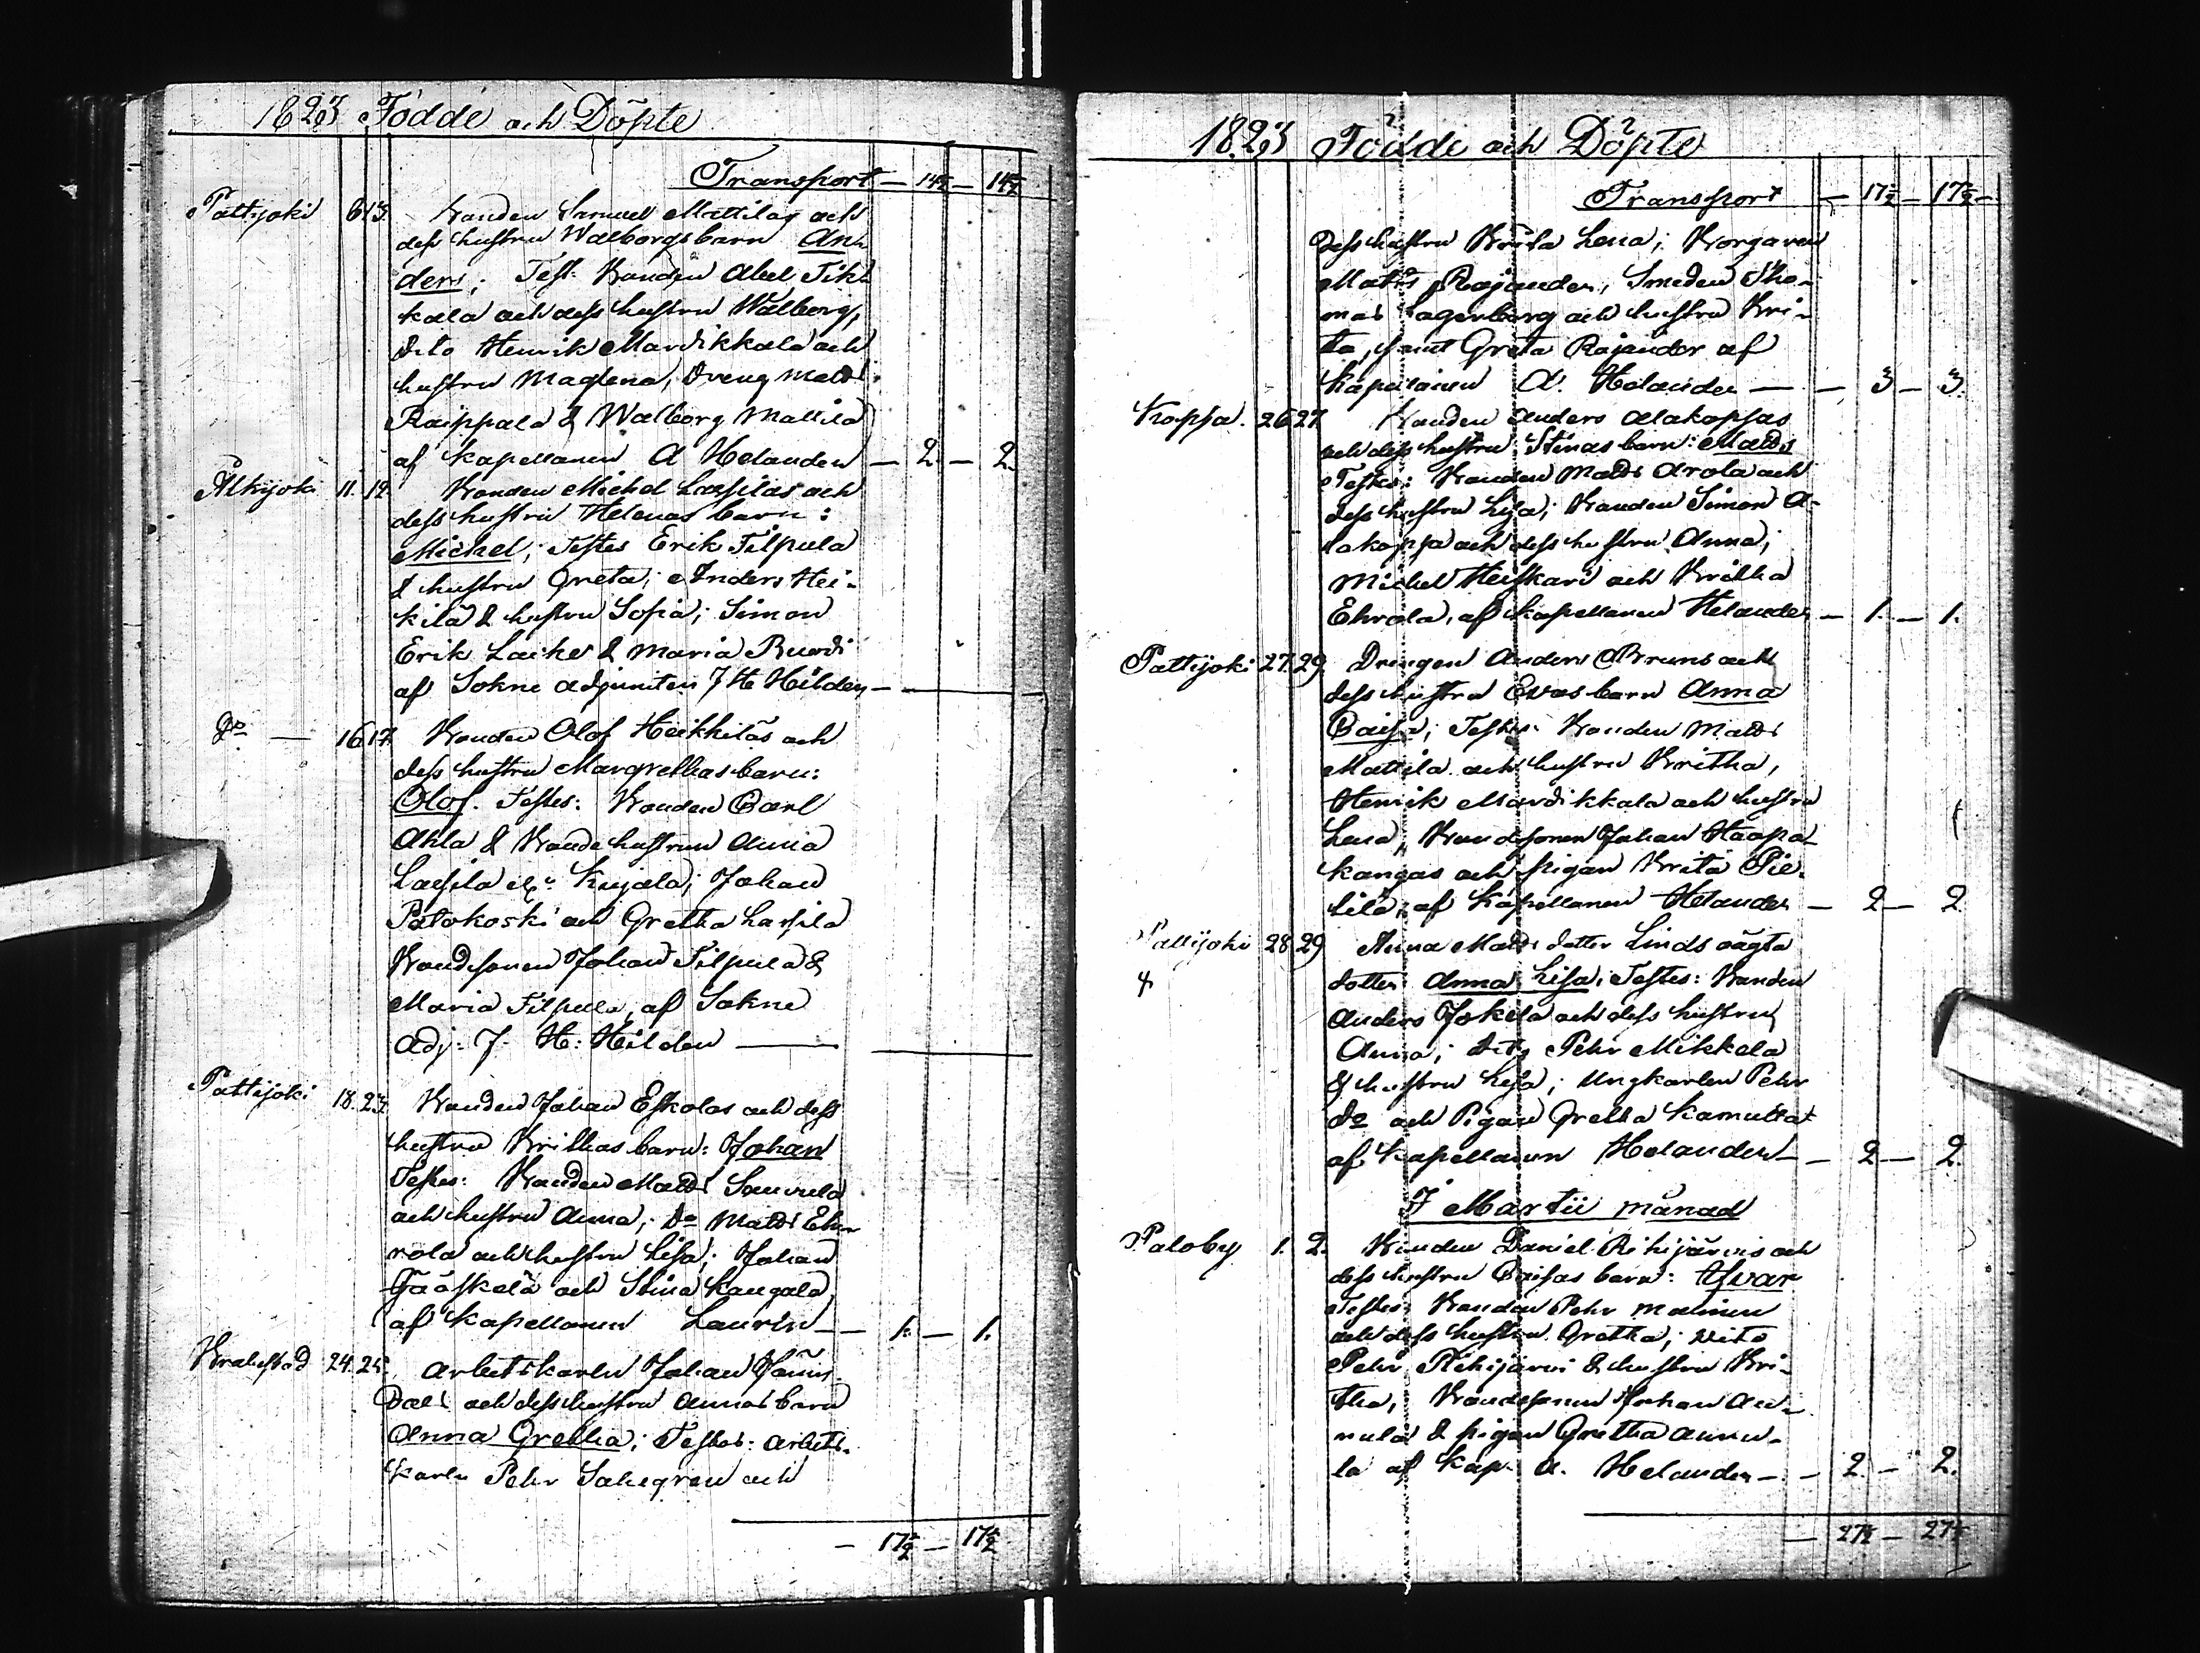 1823 Födde och Döpte
Transport — 14½ — 14½
Pattijoki 6 13. Bonden Samuel Mattilas och
dess hustru Walborgs barn An-
ders; Test. Bonden Abel Tik-
kala och dess hustru Walborg,
dito Henrik Mardikkala och
hustru Maglena, Dreng Matts
Raippala & Walborg Mattila
af Kapellanen A Helander — 2. — 2.
Olkijoki 11. 12. Bonden Michel Lassilas och
dess hustru Helenas barn:
Michel; Testes Erik Tilpula
& hustru Greta; Anders Hei-
kilä & hustru Sofia; Simon
Erik Laike & Maria Ruardi
af Sokne adjuncten J H Hilden —
Do — 16 17. Bonden Olof Heikkiläs och
dess hustru Margrethas barn:
Olof. Testes: Bonden Carl
Ahla & Bonde hustrun Anna
Lassila & Kujala; Johan
Patokoski och Gretha Lassila
Bondesonen Johan Tilpula &
Maria Tilpula, af Sokne
Adj: J. H: Hilden —
Pattijoki 18. 23. Bonden Johan Eskolas och dess
hustru Brithas barn: Johan
Testes: Bonden Matts Samuela
och hustru Anna; Do Matts Ehr-
rola och hustru Lisa; Johan
Jääskelä och Stina Kangala,
af Kapellanen Laurin — 1. — 1.
Brahestad 24. 25. Arbetskarln Johan
Dals och dess hustru Annas barn
Anna Gretha; Testes: Arbets-
karln Pehr Sahlgren och
— 17½ — 17½
1823 Födde och Döpte
Transport — 17½ — 17½ —
dess hustru Brita Lena; Borgaren
Matts Rajander, Smeden Tho-
mas Lagerborg och hustru Bri-
ta, samt Greta Rajander af
Kapellanen A. Helander — 3 — 3.
Koppa. 26 27. Bonden Anders Alakopsas
och dess hustru Stinas barn: Matts
Testes: Bonden Matts Arola och
dess hustru Lisa; Bonden Simon A-
lakopsa och dess hustru Anna;
Michel Heiskari och Britha
Ehrola, af Kapellanen Helander — 1. — 1.
Pattijoki 27. 29. Drengen Anders Bruns och
dess hustru Evas barn Anna
Caisa; Testes: Bonden Matts
Mattila och hustru Britha,
Henrik Mardikkala och hustru
Lena, Bondesonen Johan Haapa-
kangas och pigan Brita Pie-
tilä, af Kapellanen Helander — 2 — 2
Pattijoki 28. 29 Anna Matts dotter Linds oägta
dotter Anna Lisa; Testes: Bonden
Anders Jokela och dess hustru
Anna; dito Pehr Mikkela
& hustru Lisa; Ungkarlen Pehr
do och Pigan Gretha Kamulta
af Kapellanen Helander — 2 — 2.
I Martii månad
Paloby 1. 2. Bonden Daniel Rihijärvis och
dess hustru Caisas barn: Ifvar
Testes Bonden Pehr Malinen
och dess hustru Gretha; dito
Pehr Rihijärvi & hustru Bri-
tha, Bondesonen Johan An-
nula & pigan Gretha Annu-
la af Kap. A. Helander — 2. — 2.
— 27½ — 27½